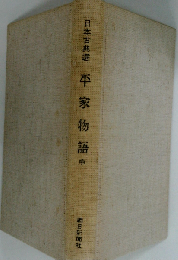 日本古典選
平家物語 中
朝日新聞社